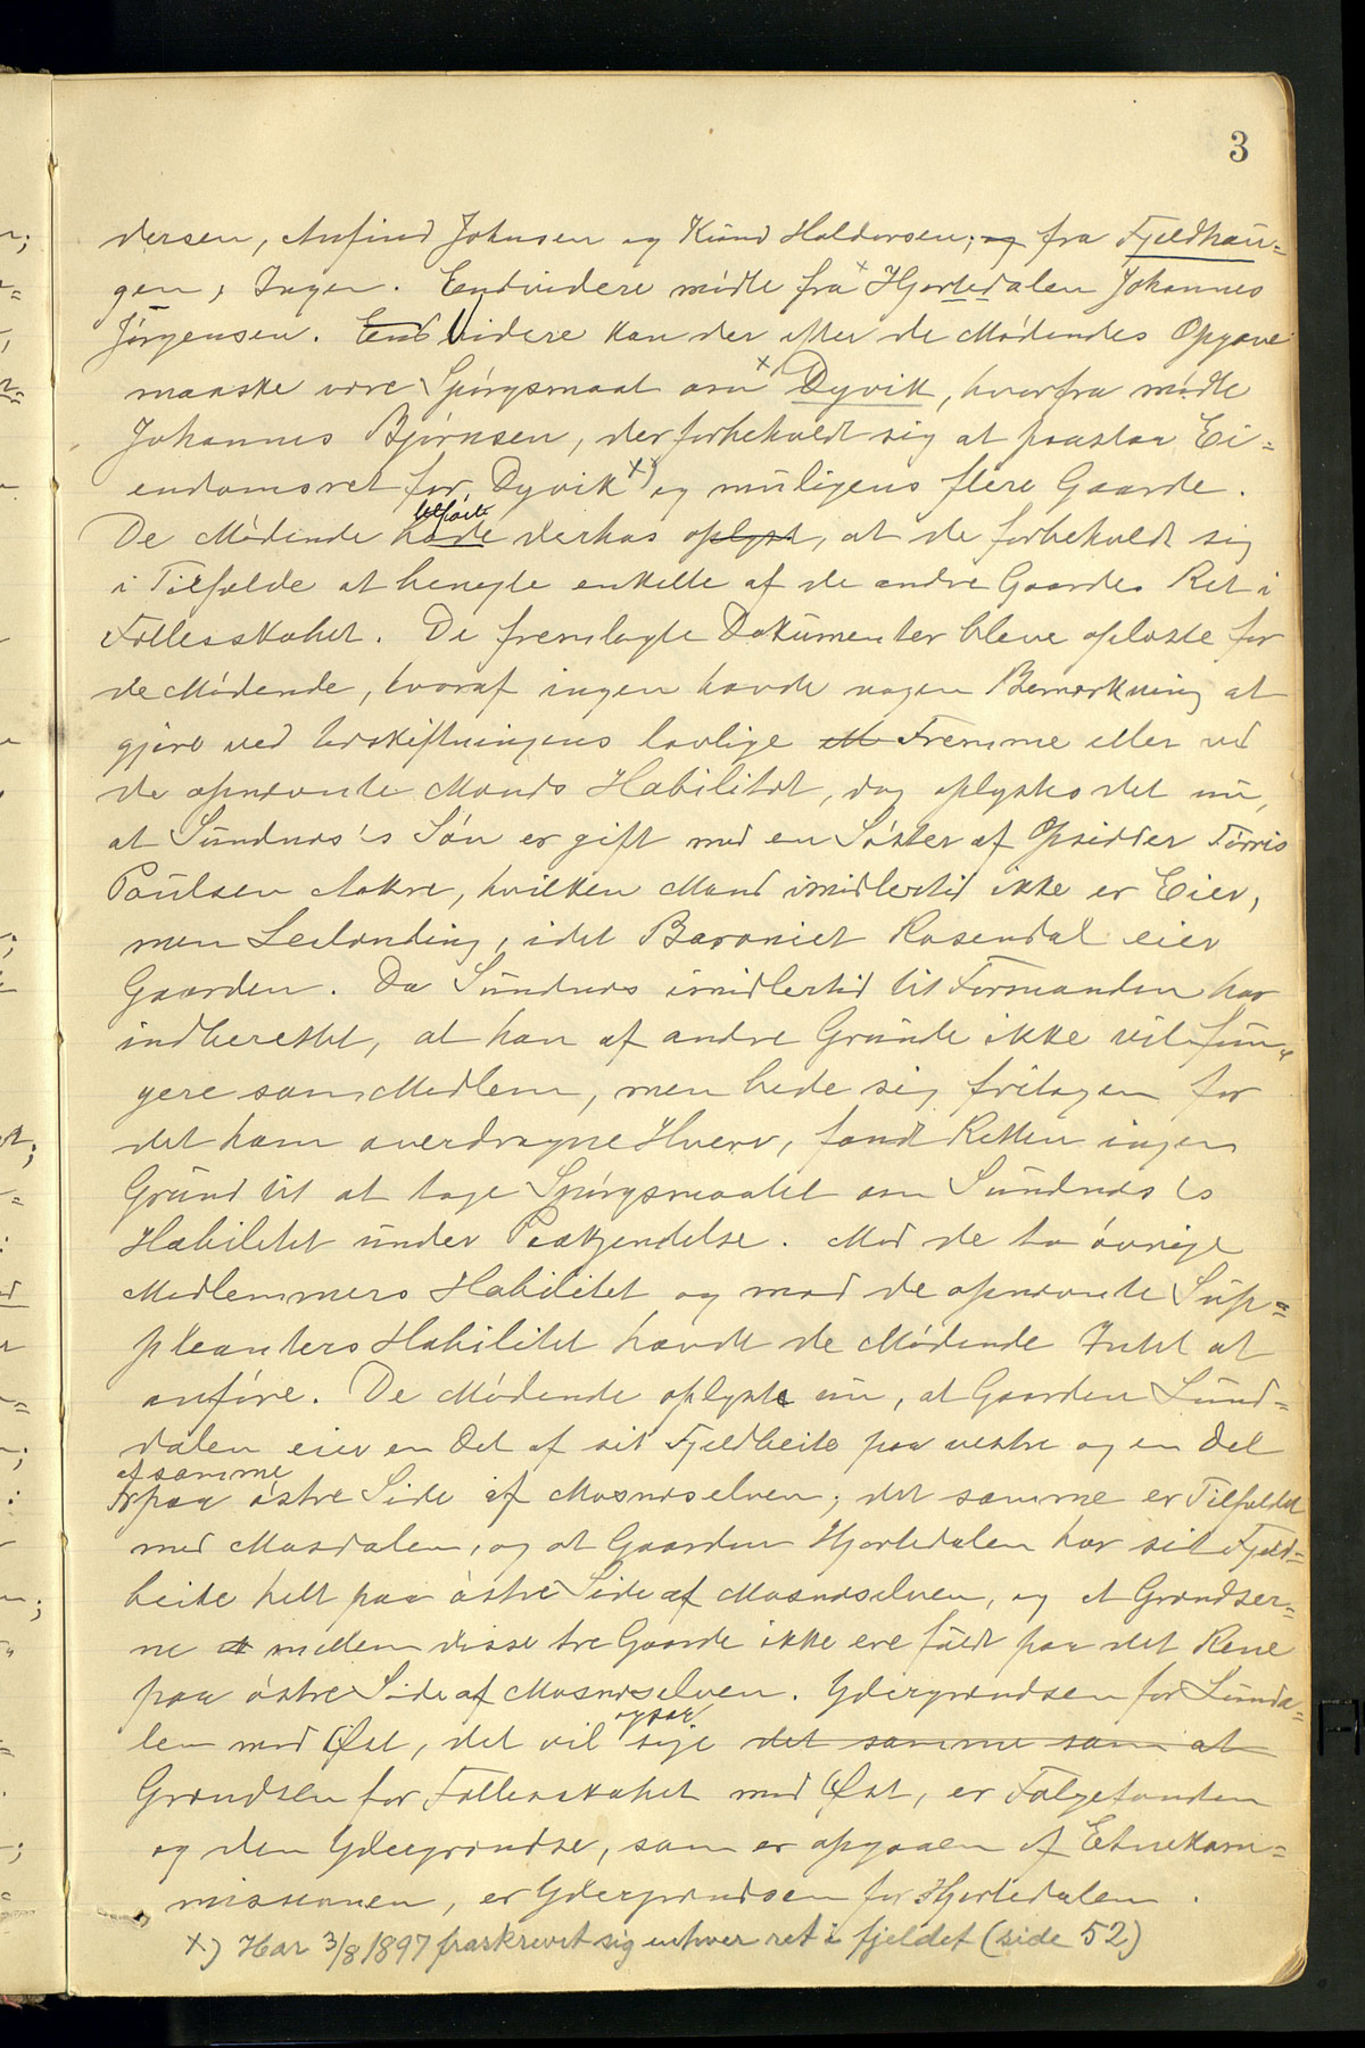 3
dersen, Anfind Johnsen og Knud Haldorsen; og fra Fjeldhau-
gen, Ingen. Endvidere mødte fra x Hjortedalen Johannes
Jørgensen. End Videre kan der efter de Mødendes Opgave
maaske være Spørgsmaal om x Dyvik, hvorfra mødte
Johannes Bjørnsen, der forbeholdt sig at paastaa Ei-
endomsret for Dyvik x) og muligens flere Gaarde.
De Mødende havde derhos oplyst, at de forbeholdt sig
i Tilfælde at benegte enkelte af de andre Gaardes Ret i
Fællesskabet. De fremlagte Dokumenter bleve oplæste for
de Mødende, hvoraf ingen havde nogen Bemærkning at
gjøre ved Udskiftningens lovlige Fremme eller ved
de opnævnte Mænds Habilitet, dog oplystes det nu,
at Sundnæs's Søn er gift med en Søster af Opsidder Tørris
Poulsen Aakre, hvilken Mand imidlertid ikke er Eier,
men Leilænding, idet Baroniet Rosendal eier
Gaarden. Da Sundnæs imidlertid til Formanden har
indberettet, at han af andre Grunde ikke vil fun-
gere som Medlem, men bede sig fritagen for
det ham overdragne Hverv, fandt Retten ingen
Grund til at tage Spørgsmaalet om Sundnæs's
Habilitet under Paakjendelse. Mod de to øvrige
Medlemmers Habilitet og mod de opnævnte Sup-
pleanters Habilitet havde de Mødende Intet at
anføre. De Mødende oplyste nu, at Gaarden Lund-
dalen eier en Del af sit Fjeldbeite paa vestre og en Del
af samme
paa østre Side af Mosnæselven; det samme er Tilfældet
med Mosdalen, og at Gaarden Hjortedalen har sit Fjeld-
beite helt paa østre Side af Mosnæselven, og at Grændser-
ne mellem disse tre Gaarde ikke ere fuldt paa det Rene
paa østre Side af Mosnæselven. Ydergrændsen for Lunda-
ogsaa
len mod Øst, det vil sige det samme som at
Grændsen for Fællesskabet mod Øst, er Folgefonden
og den Ydergrændse, som er opgaaen af Etnekom-
missionen, er Ydergrændsen for Hjortedalen.
x) Har 3/8 1897 fraskrevet sig enhver ret i fjeldet (side 52)